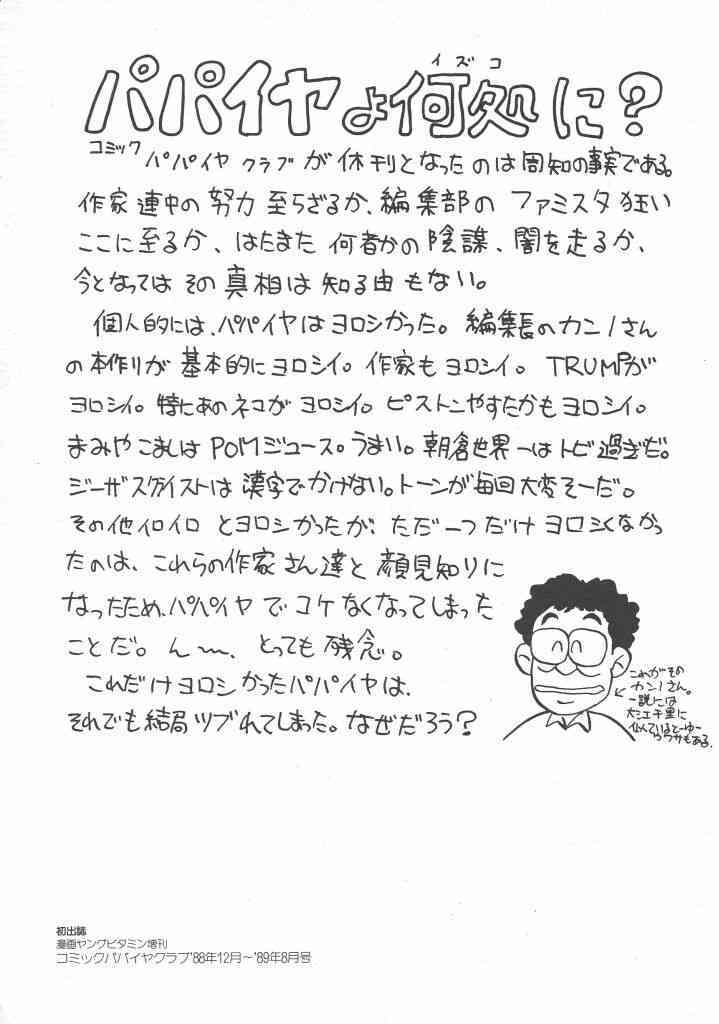 イズコ
パパイヤよ何処に?
コミック パパイヤ クラブが休刊となったのは周知の事実である。
作家連中の努力至らざるか、編集部のファミスタ狂い
ここに至るか、はたまた何者かの陰謀、闇を走るか、
今となってはその真相は知る由もない。
個人的には、パパイヤはヨロシかった。編集長のカンノさん
の本作りが基本的にヨロシイ。作家もヨロシイ。TRUMPが
ヨロシイ。特にあのネコがヨロシイ。ピストンやすたかもヨロシイ。
まみやこましはPOMジュース。うまい。朝倉世界一はトビ過ぎだ。
ジーザスグイストは漢字でかけない。トーンが毎回大変そーだ。
その他イロイロとヨロシかったが、ただ一つだけヨロシくなかっ
たのは、これらの作家さん達と顔見知りに
なったため、パパイヤでコケなくなってしまった
ことだ。ん〜、とっても残念。
これだけヨロシかったパパイヤは、
それでも結局ツブれてしまった。なぜだろう?
これがその
カンノさん。
一説には
大江千里に
似ているとーゆー
ウワサもある。
初出誌
漫画ヤングビタミン増刊
コミックパパイヤクラブ'88年12月〜'89年8月号